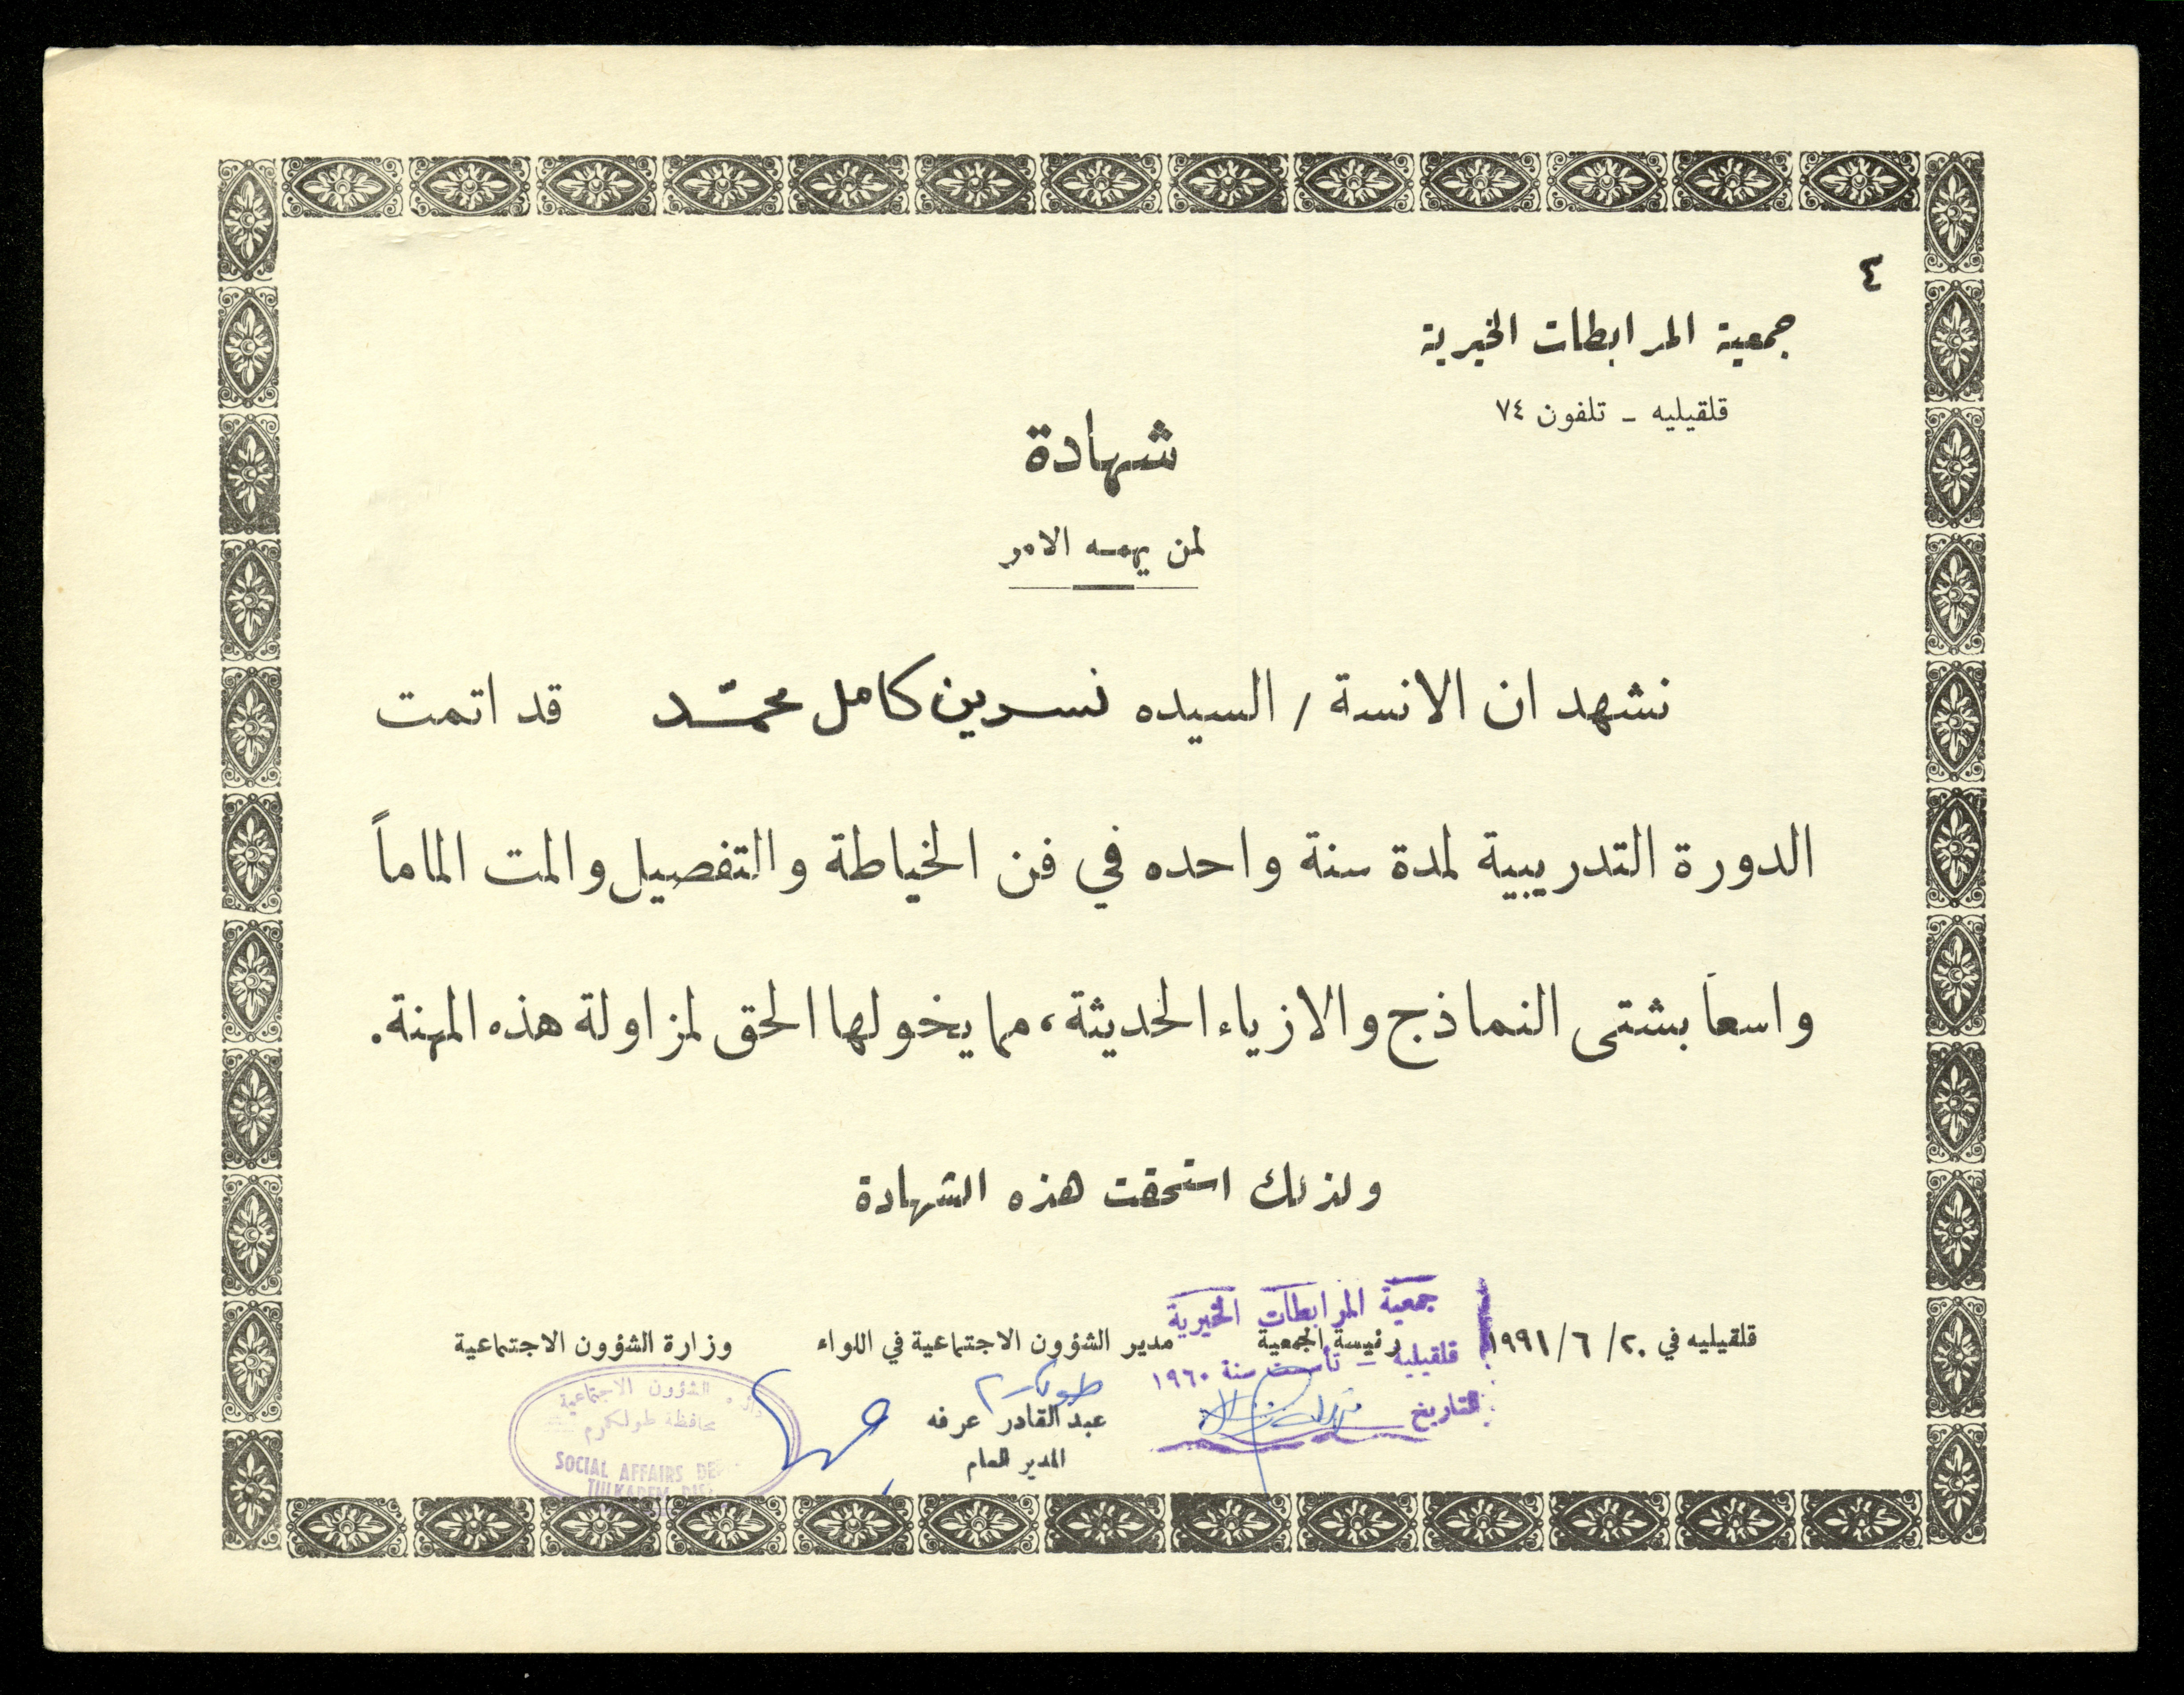 ٤
جمعية المرابطات الخيرية
قلقيليه - تلفون ٧٤
شهادة
لمن يهمه الامر
نشهد ان الانسة / السيده نسرين كامل محمّد قد اتمت
الدورة التدريبية لمدة سنة واحده في فن الخياطة والتفصيل والمت الماماً
واسعاً بشتى النماذج والازياء الحديثة، مما يخولها الحق لمزاولة هذه المهنة.
ولذلك استحقت هذه الشهادة
قلقيليه في ٢٠/ ٦/ ١٩٩١ رئيسة الجمعية مدير الشؤون الاجتماعية في اللواء وزارة الشؤون الاجتماعية
جمعية المرابطات الخيرية
قلقيلية - تأسست سنة ١٩٦٠
التاريخ
طولكرم
عبد القادر عرفه
المدير العام
دائرة الشؤون الاجتماعية
محافظة طولكرم
SOCIAL AFFAIRS
TULKAREM